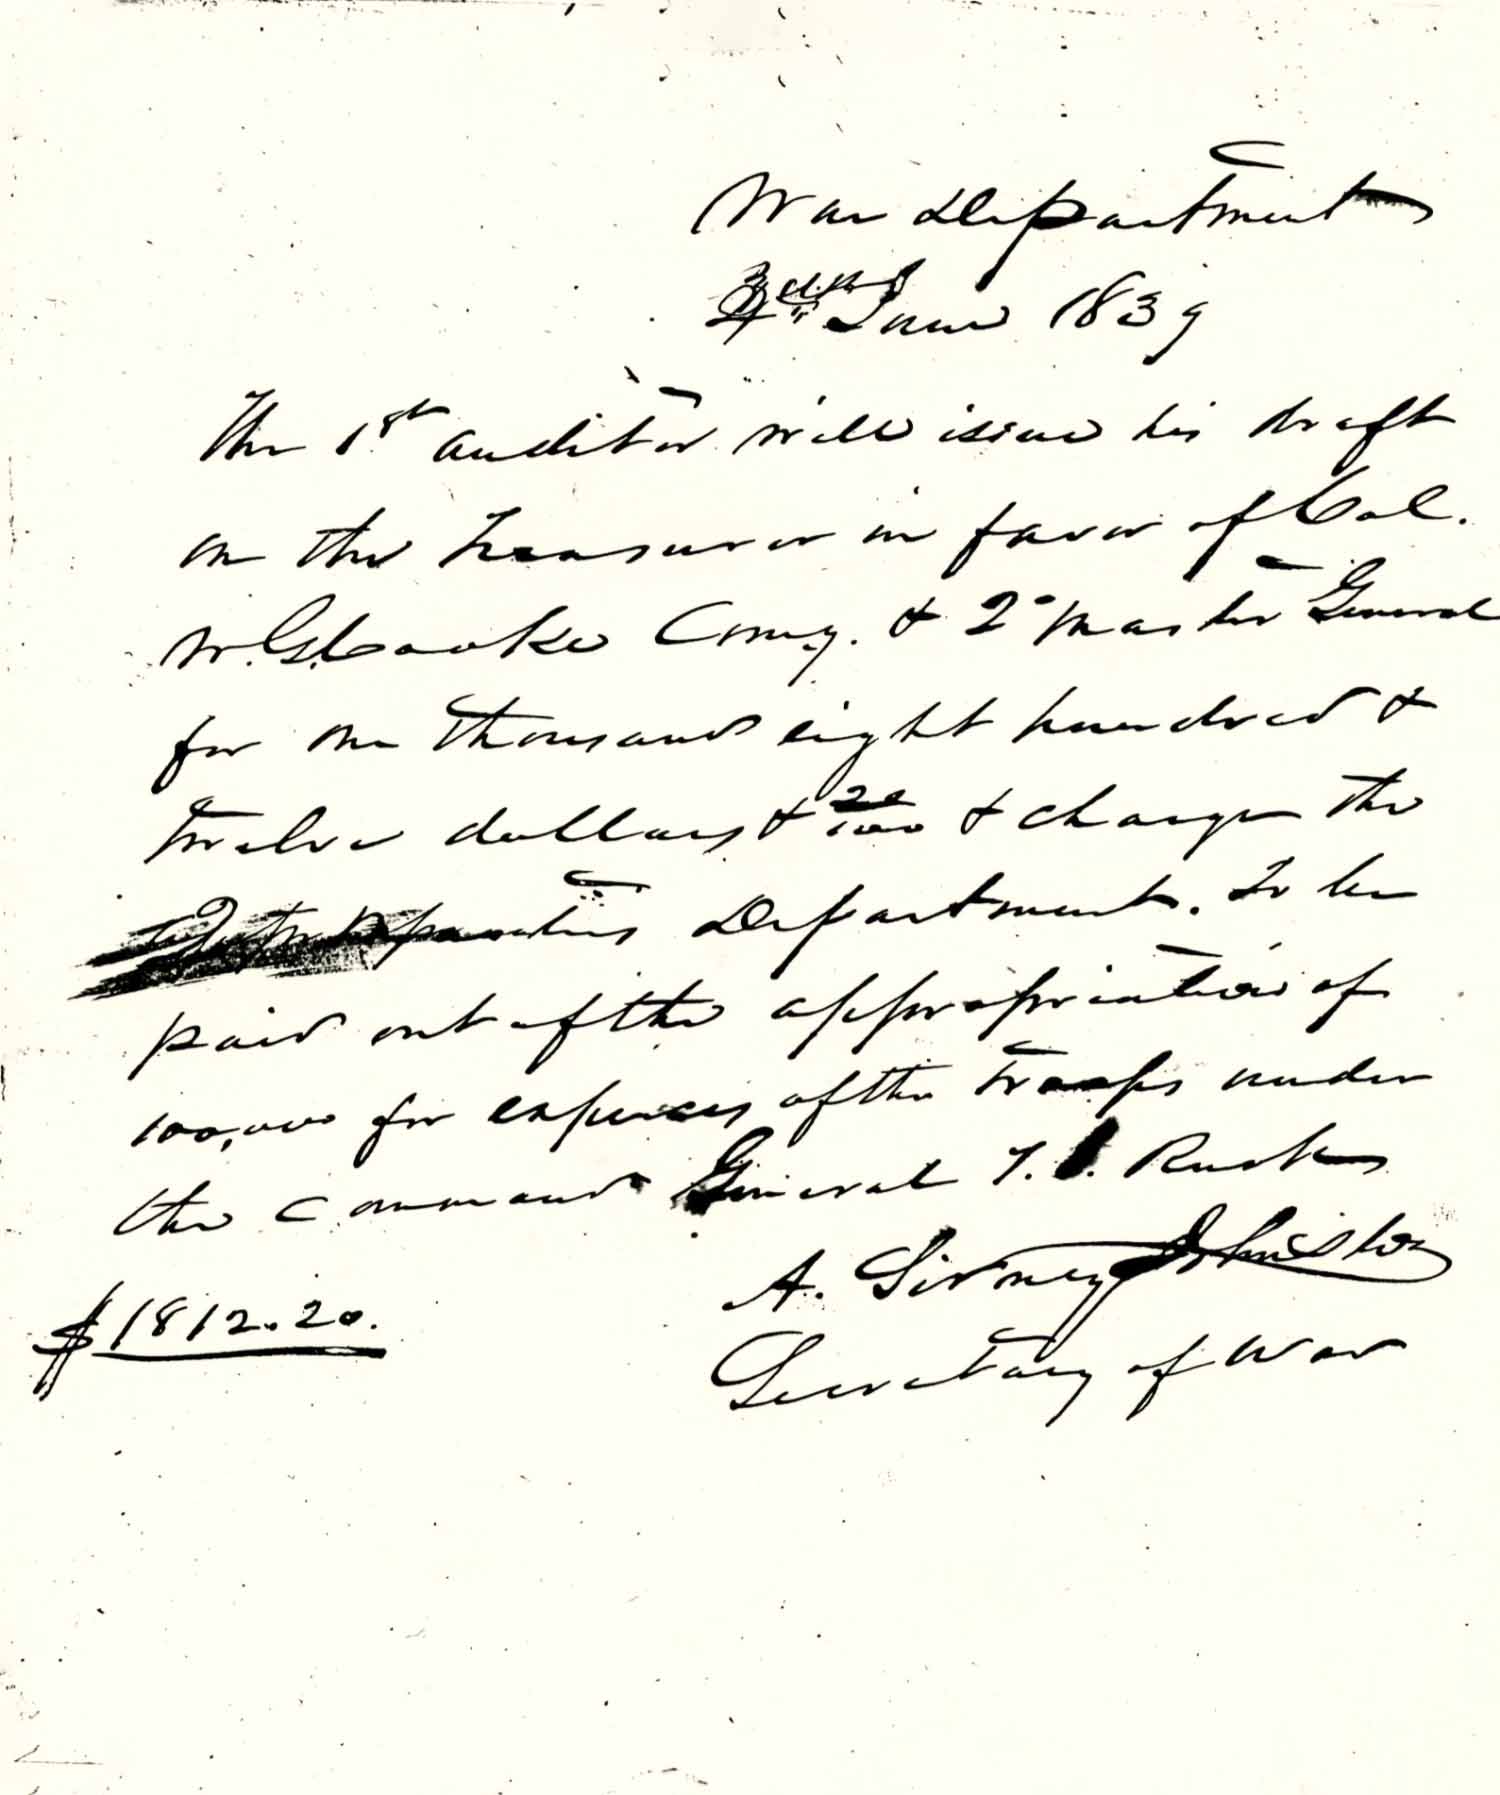 War Department
June 1839
The 1st auditor will issue his draft
on the Treasurer in favor of Col.
W. G. Cooke Comy. & Qr Master General
for one thousand eight hundred &
twelve dollars & 20/100 & charge the
Department. To be
paid out of the appropriation of
100,000 for expences of the troops under
the command General T. J. Rusk
A. Sidney Johnston
$1812.20. Secretary of War